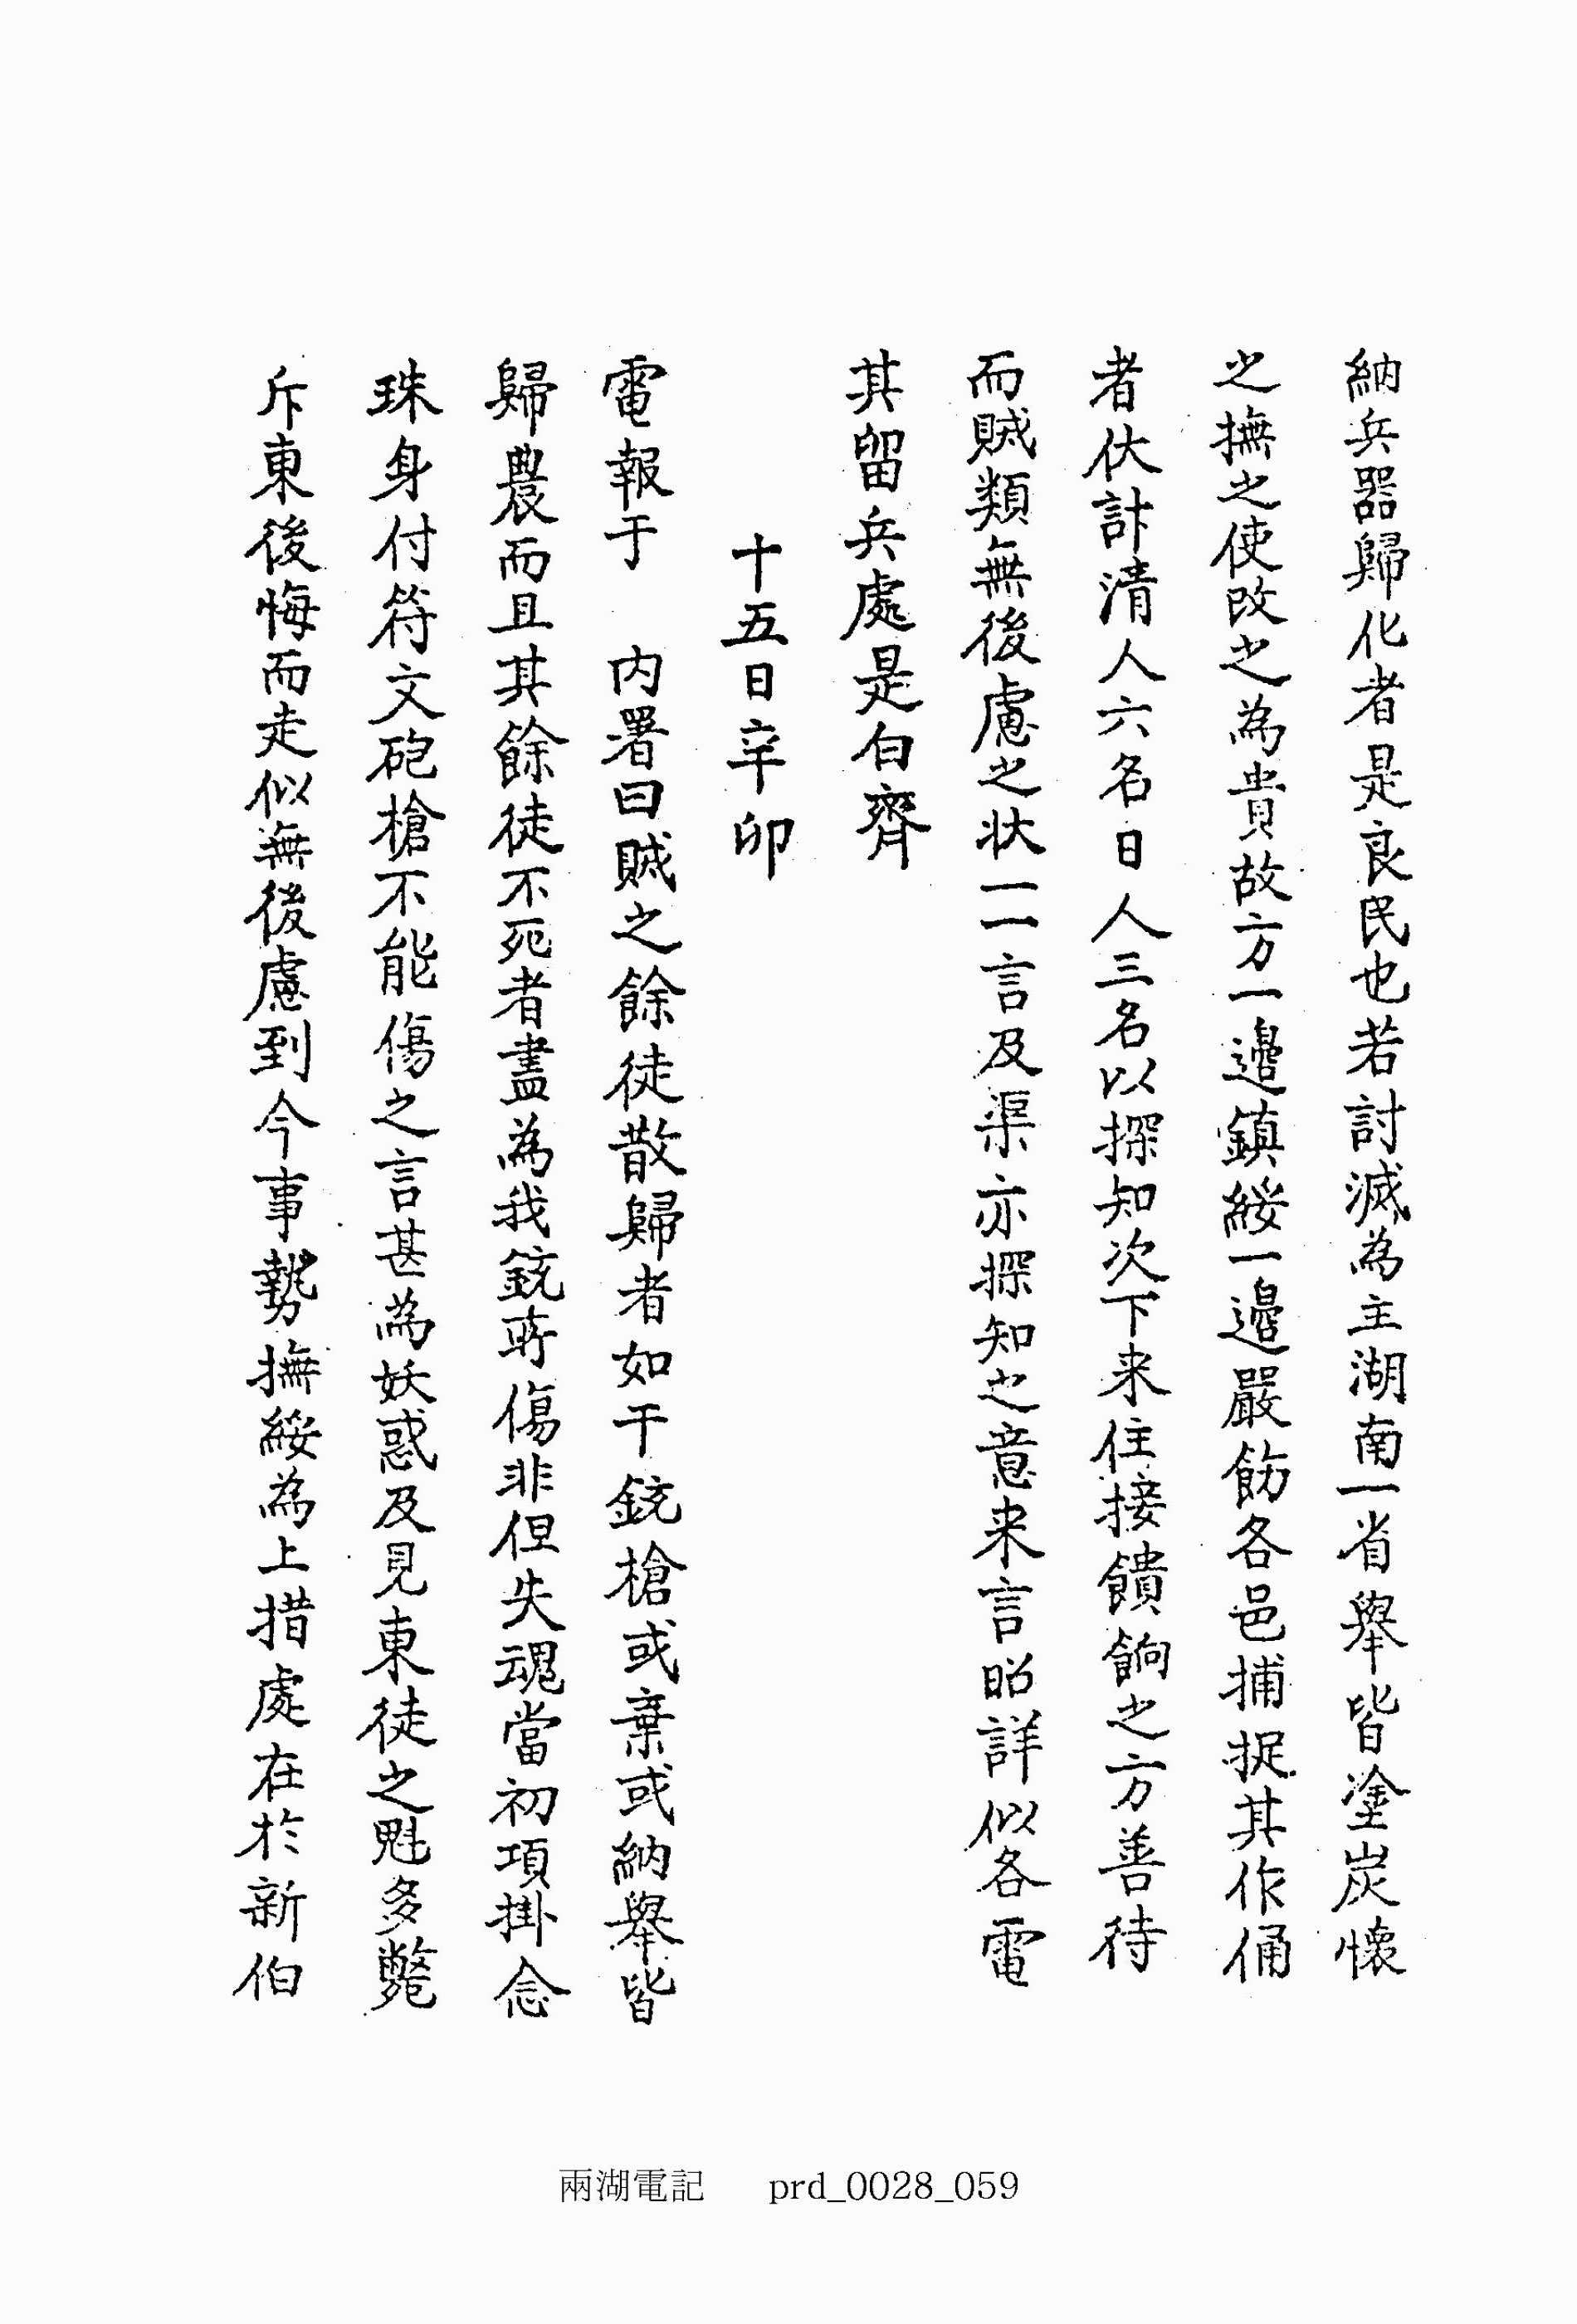 納兵器歸化者是良民也若討滅為主湖南一省擧皆塗炭懷
之撫之使改之為貴故方一邊鎮綏一邊嚴飭各邑捕捉其作俑
者伏計清人六名日人三名以探知次下来住接饋餉之方善待
而賊類無後慮之状一一言及渠亦探知之意来言昭詳似各電
其留兵處是白齊
十五日辛卯
電報于 内署曰賊之餘徒散歸者如干銃槍或棄或納擧皆
歸農而且其餘徒不死者盡為我銃所傷非但失魂當初項掛念
珠身付符文砲槍不能傷之言甚為妖惑及見東徒之魁多斃
斥東後悔而走似無後慮到今事勢撫綏為上措處在於新伯
兩湖電記 prd_0028_059